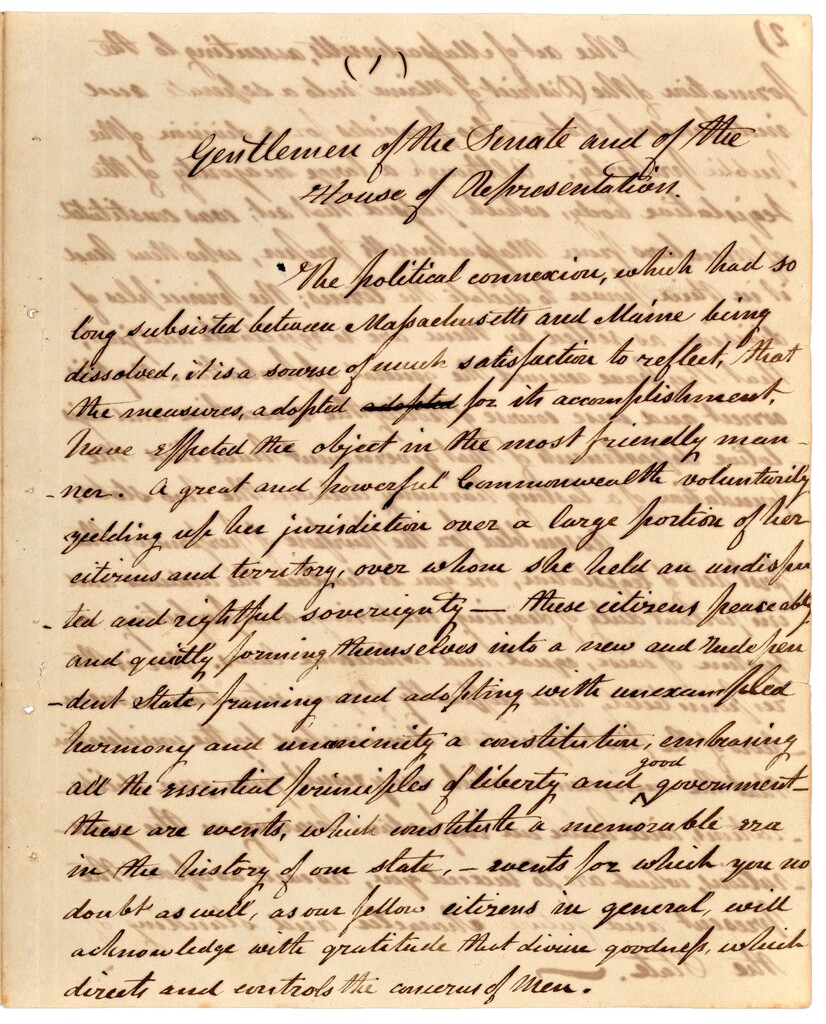 (1)
Gentlemen of the Senate and of the
House of Representation.
The political connexion, which had so
long subsisted between Massachusetts and Maine being
dissolved, it is a sourse of much satisfaction to reflect, that
the measures, adopted adopted for its accomplishment,
have effected the object in the most friendly man-
-ner. A great and powerful Commonwealth voluntarily
yielding up her jurisdiction over a large portion of her
citizens and territory, over whom she held an undispu
-ted and rightful sovereignty — these citizens peaceably
and quietly forming themselves into a new and Indepen
-dent State, framing and adopting with unexampled
harmony and unanimity a constitution, embrasing
all the essential principles of liberty and good government—
these are events, which constitute a memorable era
in the history of our state, — events for which you no
doubt as well, as our fellow citizens in general, will
acknowledge with gratitude that divine goodness, which
directs and controls the concerns of Men.